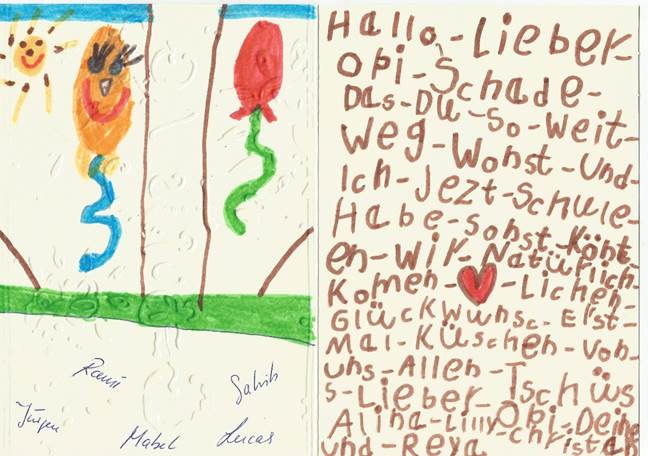 Rami
Sahib
Jürgen
Mabel
Lucas
Hallo,-Lieber-
Opi-Schade-
Das-Du-so-weit-
weg-Wonst-Und-
Ich-Jezt-Schule-
Habe-sonst-Könt
en-wir-Natürlich-
Komen-❤-Lichen-
Glückwunsc-Erst-
Mal-Küschen-von-
uns-Allen-Tschüs
s-Lieber-Opi-Deine
Alina-Lilly-christan
und-Reya